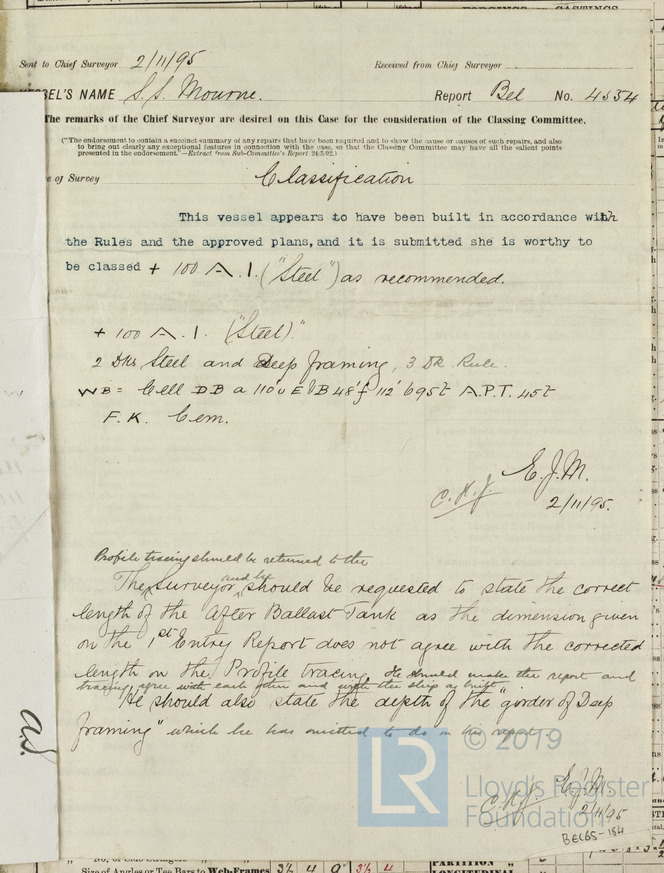 FORGINGS or CASTINGS
Sent to Chief Surveyor 2/11/95 Received from Chief Surveyor
VESSEL'S NAME S.S. Mourne. Report Bel No. 4554
The remarks of the Chief Surveyor are desired on this Case for the consideration of the Classing Committee.
("The endorsement to contain a succinct summary of any repairs that have been required and to show the cause or causes of such repairs, and also
to bring out clearly any exceptional features in connection with the case, so that the Classing Committee may have all the salient points
presented in the endorsement."—Extract from Sub-Committee's Report 24/5/92.)
e of Survey Classification
This vessel appears to have been built in accordance with
the Rules and the approved plans, and it is submitted she is worthy to
be classed + 100 A.1. ("Steel") as recommended.
+ 100 A.1. (Steel)."
2 Dks Steel and Deep framing, 3 Dk Rule.
WB = Cell DB a 110' u E B 48' f 112' 695t A.P.T. 45t
F.K. Cem.
E.J.M.
2/11/95.
Profile tracing should be returned to the
The Surveyor and he should be requested to state the correct
length of the After Ballast Tank as the dimension given
on the 1st Entry Report does not agree with the corrected
length on the Profile tracing. He should make the report and
tracing agree with each other and with the ship as built.
He should also state the depth of the "girder of Deep
framing" which he has omitted to do on his report.
as.
E.J.M.
2/11/95
LR © 2019
Lloyd's Register
Foundation
BEL65-184
No. of Side Stringers
Size of Angles or Tee Bars to Web-Frames 3½ 4 9 3½ 4
PARTITION "
LONGITUDINAL